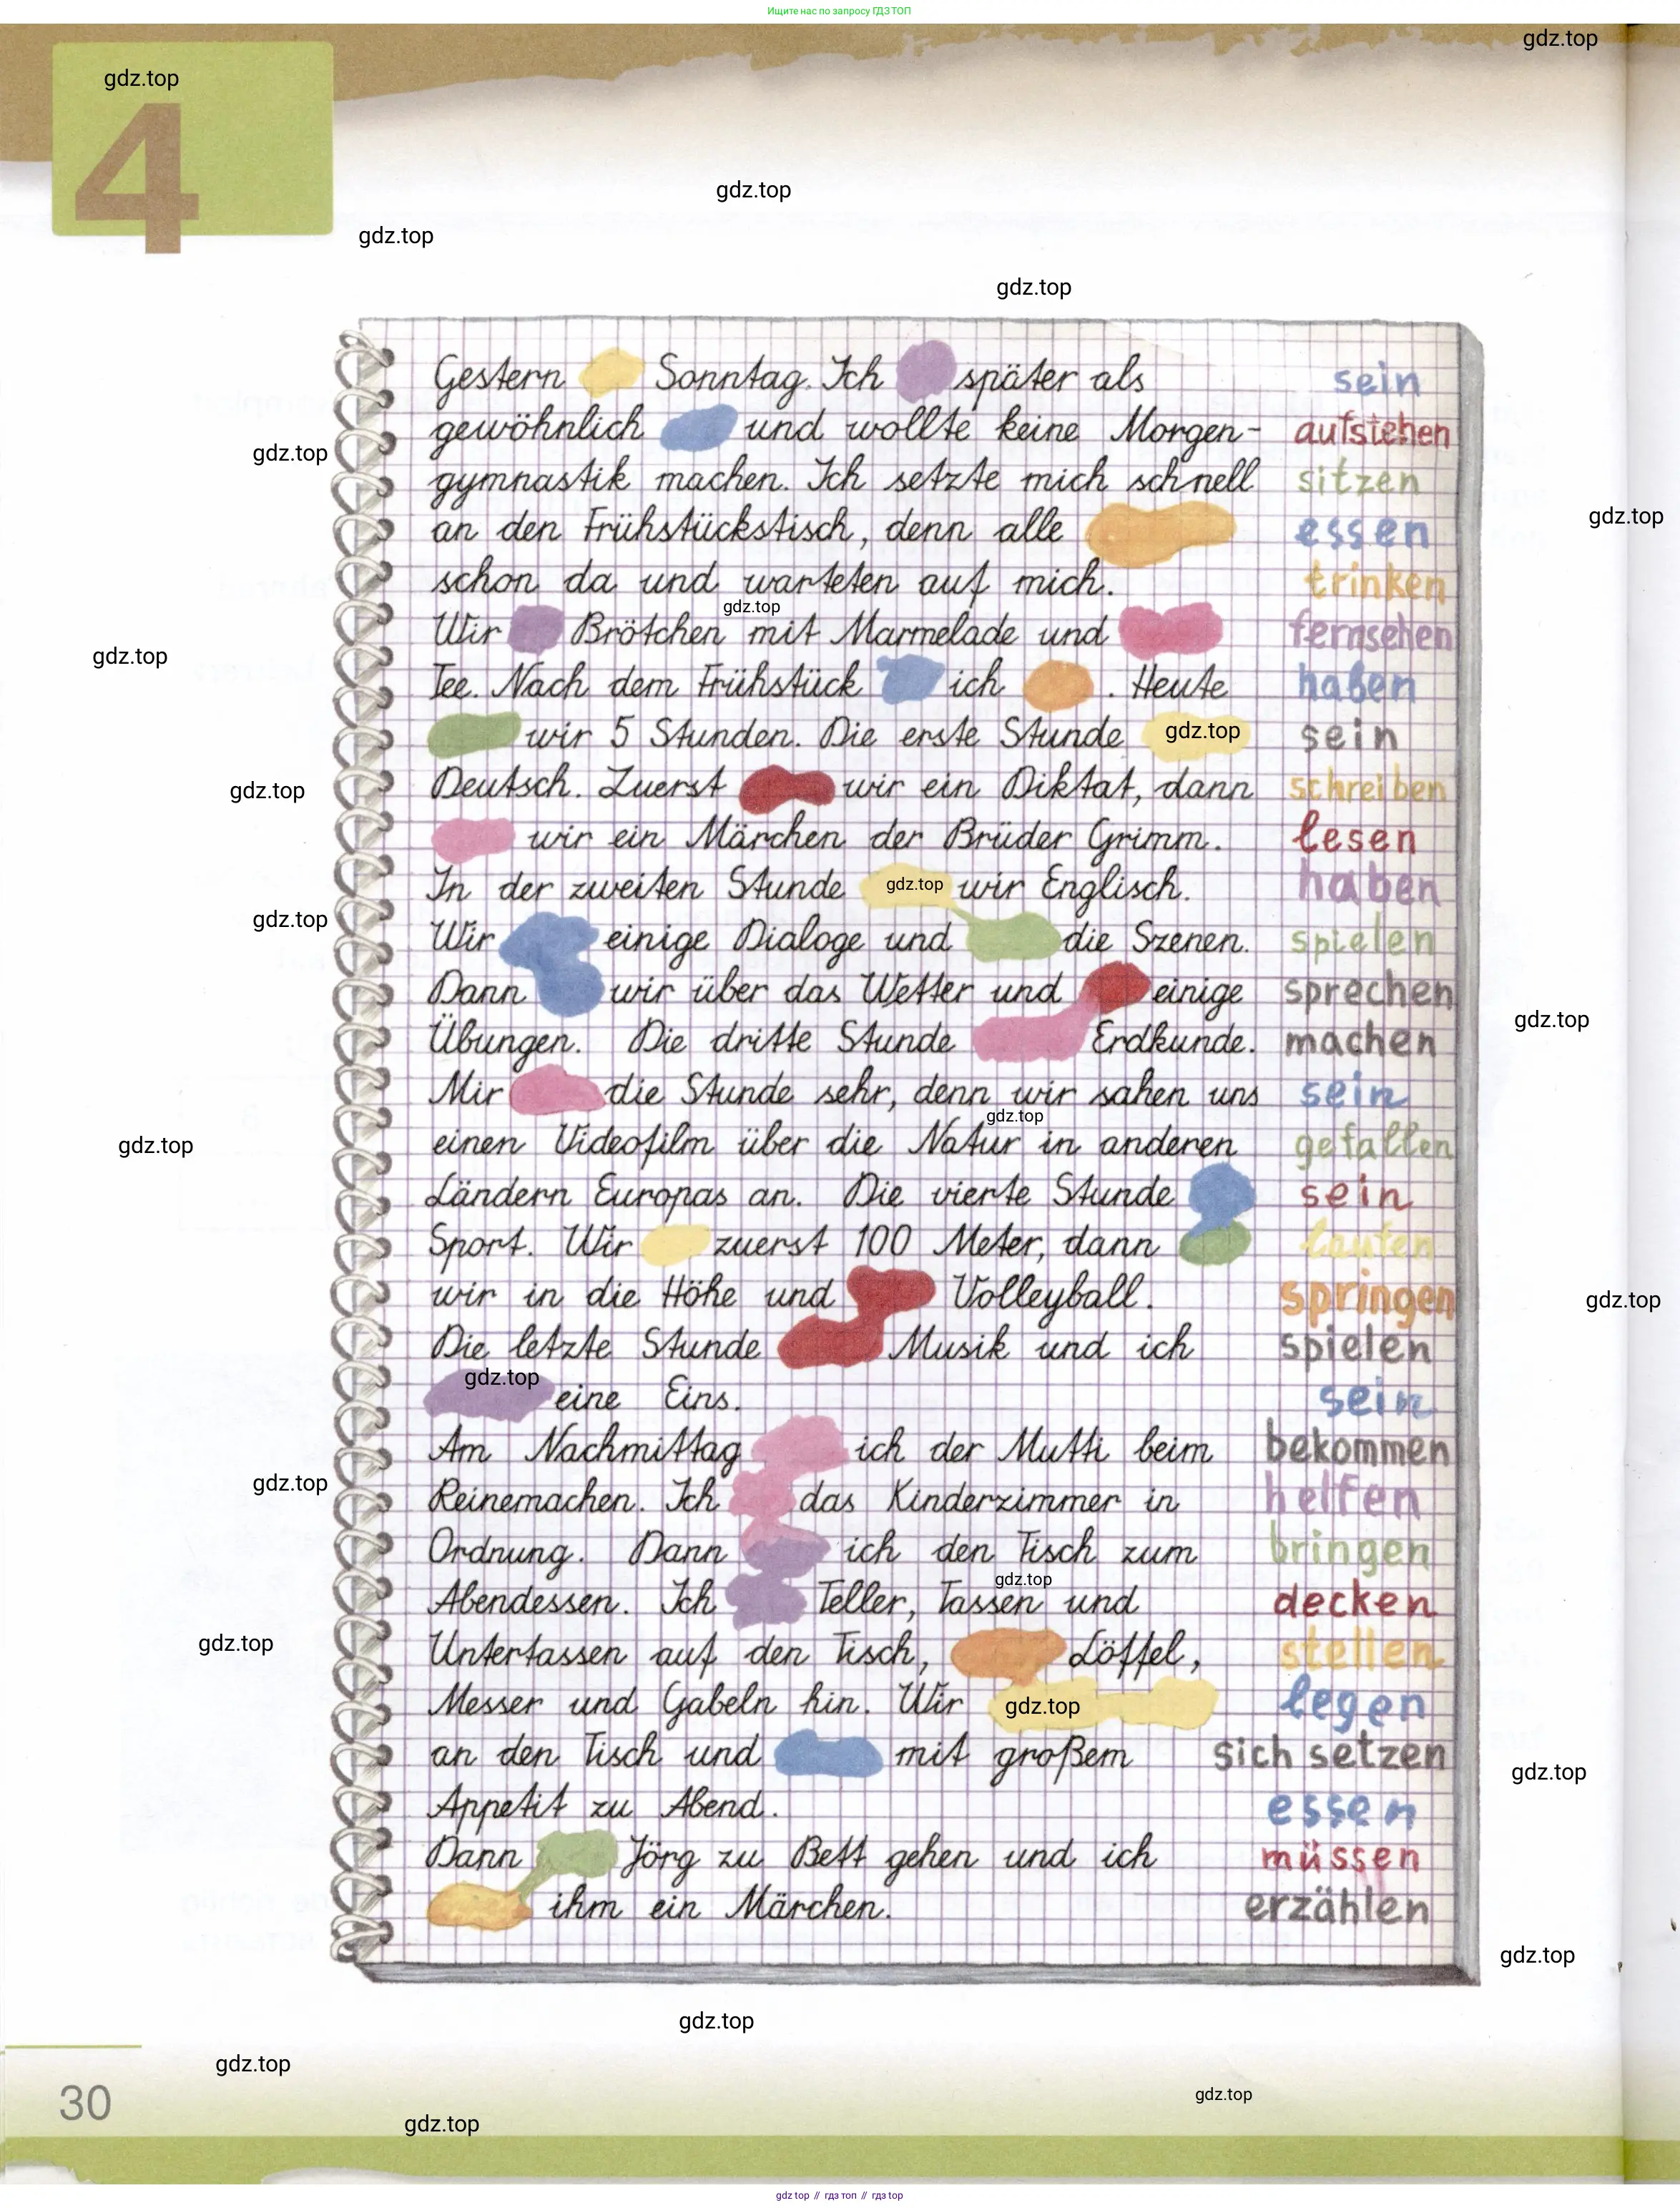 Ищите нас по запросу ГДЗ ТОП
gdz.top
gdz.top
4
gdz.top
gdz.top
gdz.top
Gestern Sonntag. Ich später als sein
gewöhnlich und wollte keine Morgen- aufstehen
gdz.top
gymnastik machen. Ich setzte mich schnell sitzen
an den Frühstückstisch, denn alle essen
gdz.top
schon da und warteten auf mich. trinken
gdz.top
Wir Brötchen mit Marmelade und fernsehen
gdz.top
Tee. Nach dem Frühstück ich . Heute haben
wir 5 Stunden. Die erste Stunde gdz.top sein
Deutsch. Zuerst wir ein Diktat, dann schreiben
gdz.top
wir ein Märchen der Brüder Grimm. lesen
In der zweiten Stunde gdz.top wir Englisch. haben
gdz.top
Wir einige Dialoge und die Szenen. spielen
Dann wir über das Wetter und einige sprechen
gdz.top
Übungen. Die dritte Stunde Erdkunde. machen
Mir die Stunde sehr, denn wir sahen uns sein
gdz.top
einen Videofilm über die Natur in anderen gefallen
gdz.top
Ländern Europas an. Die vierte Stunde sein
Sport. Wir zuerst 100 Meter, dann laufen
wir in die Höhe und Volleyball. springen
gdz.top
Die letzte Stunde Musik und ich spielen
gdz.top
eine Eins. sein
Am Nachmittag ich der Mutti beim bekommen
gdz.top
Reinemachen. Ich das Kinderzimmer in helfen
Ordnung. Dann ich den Tisch zum bringen
gdz.top
Abendessen. Ich Teller, Tassen und decken
gdz.top
Untertassen auf den Tisch, Löffel, stellen
Messer und Gabeln hin. Wir gdz.top legen
an den Tisch und mit großem sich setzen
gdz.top
Appetit zu Abend. essen
Dann Jörg zu Bett gehen und ich müssen
ihm ein Märchen. erzählen
gdz.top
gdz.top
gdz.top
30
gdz.top
gdz.top
gdz top // гдз топ // gdz top